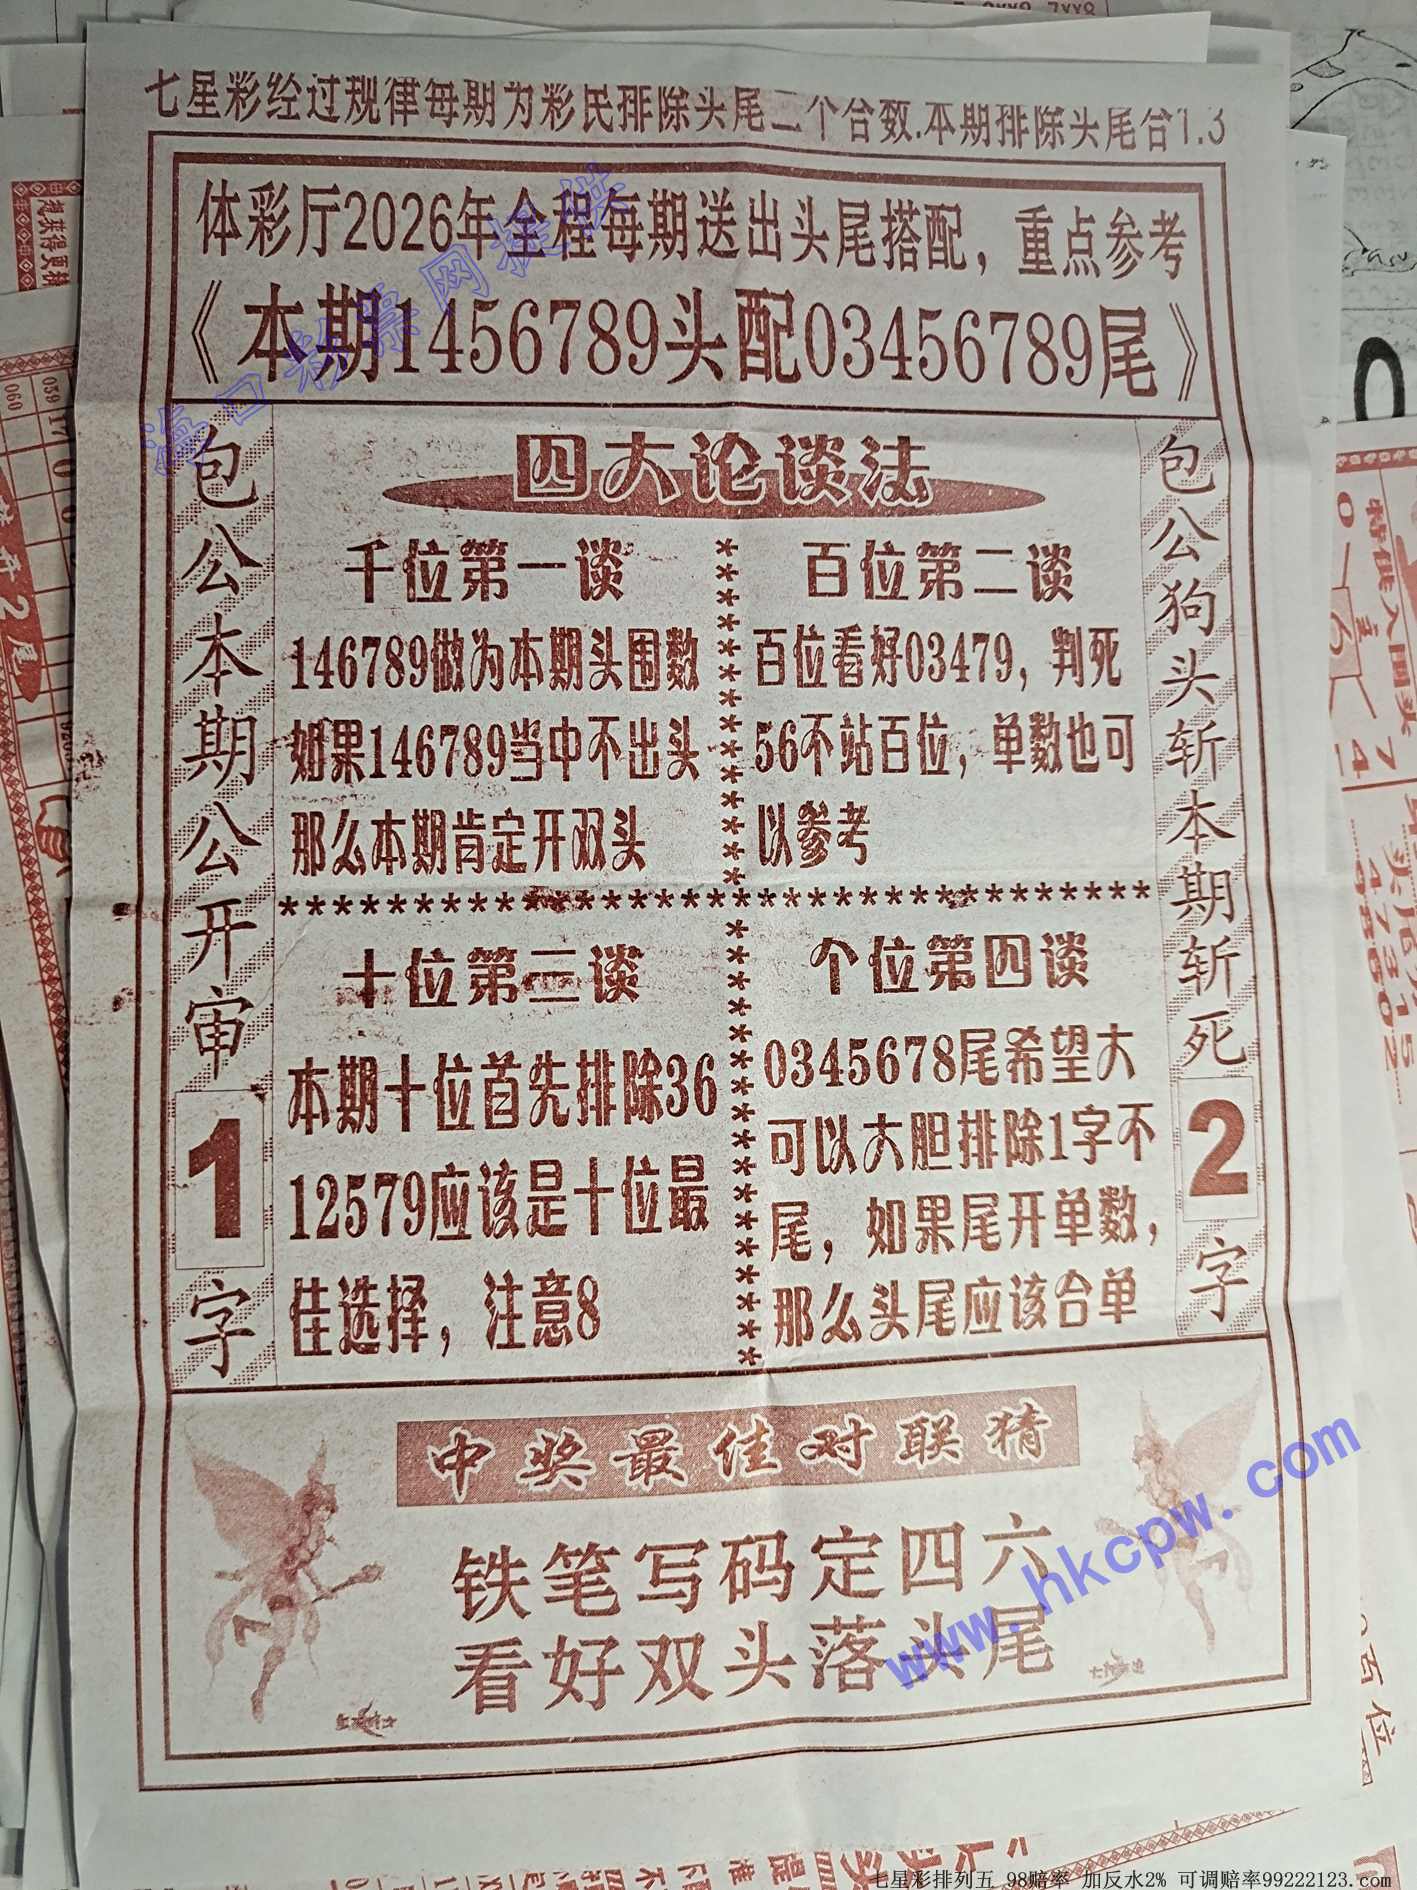 七星彩经过规律每期为彩民排除头尾二个合数.本期排除头尾合1.3
体彩厅2026年全程每期送出头尾搭配，重点参考
《本期1456789头配03456789尾》
海口彩票网提供
包公本期公开审1字
四大论谈法
千位第一谈
146789做为本期头围数
如果146789当中不出头
那么本期肯定开双头
百位第二谈
百位看好03479，判死
56不站百位，单数也可
以参考
********************************
十位第三谈
本期十位首先排除36
12579应该是十位最
佳选择，注意8
个位第四谈
0345678尾希望大
可以大胆排除1字不
尾，如果尾开单数，
那么头尾应该合单
包公狗头斩本期斩死2字
中奖最佳对联猜
铁笔写码定四六
看好双头落头尾
www.hkcpw.com
七星彩排列五 98赔率 加反水2% 可调赔率99222123.com